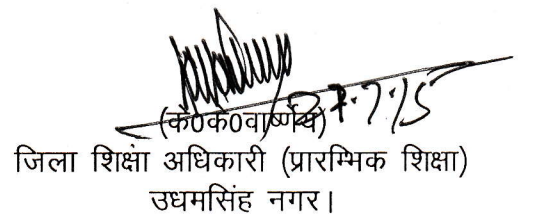 27.7.15
(के0के0वार्ष्णेय)
जिला शिक्षा अधिकारी (प्रारम्भिक शिक्षा)
उधमसिंह नगर।